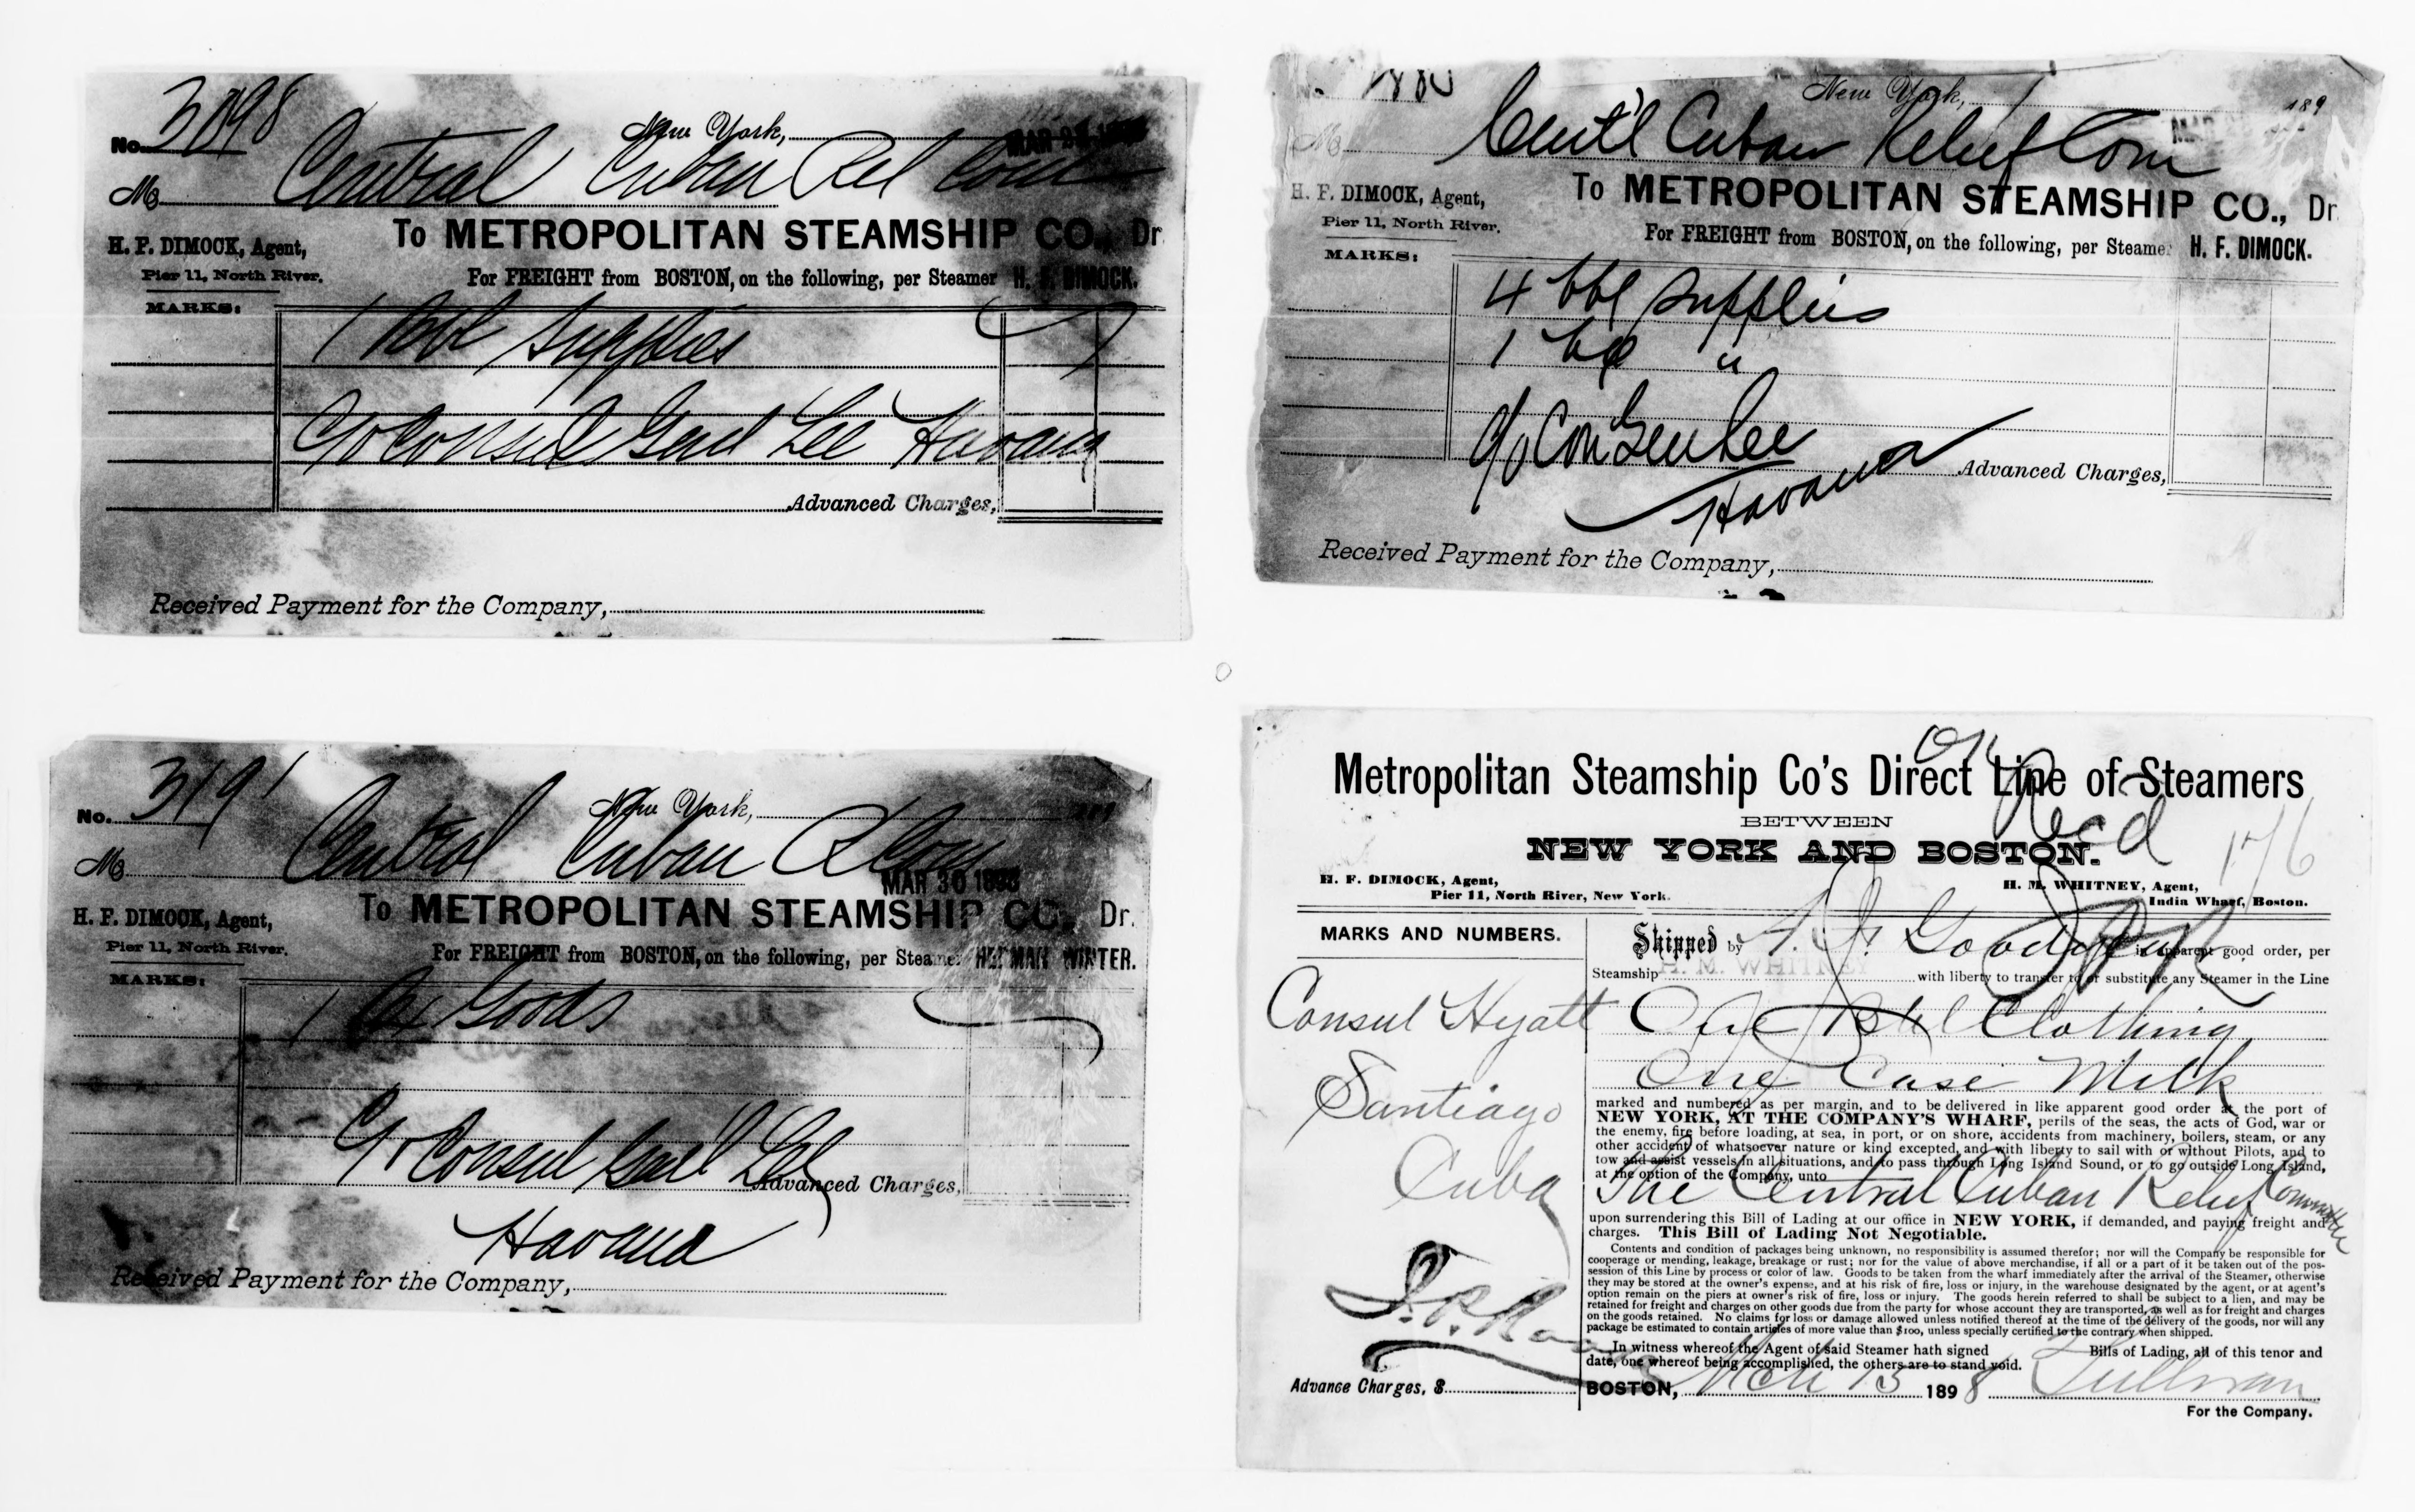 No. 3098
New York, MAR 2
Mr Central Cuban Rel Com
To METROPOLITAN STEAMSHIP CO., Dr
H. F. DIMOCK, Agent,
Pier 11, North River.
For FREIGHT from BOSTON, on the following, per Steamer H. F. DIMOCK.
MARKS:
1 bbl Supplies
c/o Consul Genl Lee Havana
Advanced Charges,
Received Payment for the Company,
No.
New York, 189
Mr Cent'l Cuban Relief Com
To METROPOLITAN STEAMSHIP CO., Dr
H. F. DIMOCK, Agent,
Pier 11, North River.
For FREIGHT from BOSTON, on the following, per Steamer H. F. DIMOCK.
MARKS:
4 bbl supplies
1 bx "
c/o Con Gen Lee
Havana
Advanced Charges,
Received Payment for the Company,
No. 3191
New York,
Mr Central Cuban R Com
MAR 30 1898
To METROPOLITAN STEAMSHIP CO., Dr.
H. F. DIMOCK, Agent,
Pier 11, North River.
For FREIGHT from BOSTON, on the following, per Steamer HERMAN WINTER.
MARKS:
1 Bx Goods
c/o Consul Genl Lee
Advanced Charges,
Havana
Received Payment for the Company,
OK
Metropolitan Steamship Co's Direct Line of Steamers
Recd
BETWEEN
176
NEW YORK AND BOSTON.
H. F. DIMOCK, Agent,
Pier 11, North River, New York.
H. M. WHITNEY, Agent,
India Wharf, Boston.
MARKS AND NUMBERS.
Shipped by in apparent good order, per
Steamship H. M. WHITNEY with liberty to transfer to or substitute any Steamer in the Line
Consul Hyatt
Santiago
Cuba
One Bbl Clothing
One Case Milk
marked and numbered as per margin, and to be delivered in like apparent good order at the port of
NEW YORK, AT THE COMPANY'S WHARF, perils of the seas, the acts of God, war or
the enemy, fire before loading, at sea, in port, or on shore, accidents from machinery, boilers, steam, or any
other accident of whatsoever nature or kind excepted, and with liberty to sail with or without Pilots, and to
tow and assist vessels in all situations, and to pass through Long Island Sound, or to go outside Long Island,
at the option of the Company, unto
The Central Cuban Relief Committee
upon surrendering this Bill of Lading at our office in NEW YORK, if demanded, and paying freight and
charges. This Bill of Lading Not Negotiable.
Contents and condition of packages being unknown, no responsibility is assumed therefor; nor will the Company be responsible for
cooperage or mending, leakage, breakage or rust; nor for the value of above merchandise, if all or a part of it be taken out of the pos-
session of this Line by process or color of law. Goods to be taken from the wharf immediately after the arrival of the Steamer, otherwise
they may be stored at the owner's expense, and at his risk of fire, loss or injury, in the warehouse designated by the agent, or at agent's
option remain on the piers at owner's risk of fire, loss or injury. The goods herein referred to shall be subject to a lien, and may be
retained for freight and charges on other goods due from the party for whose account they are transported, as well as for freight and charges
on the goods retained. No claims for loss or damage allowed unless notified thereof at the time of the delivery of the goods, nor will any
package be estimated to contain articles of more value than $100, unless specially certified to the contrary when shipped.
In witness whereof the Agent of said Steamer hath signed Bills of Lading, all of this tenor and
date, one whereof being accomplished, the others are to stand void.
Advance Charges, $
BOSTON, Mch 15 1898 Sullivan
For the Company.